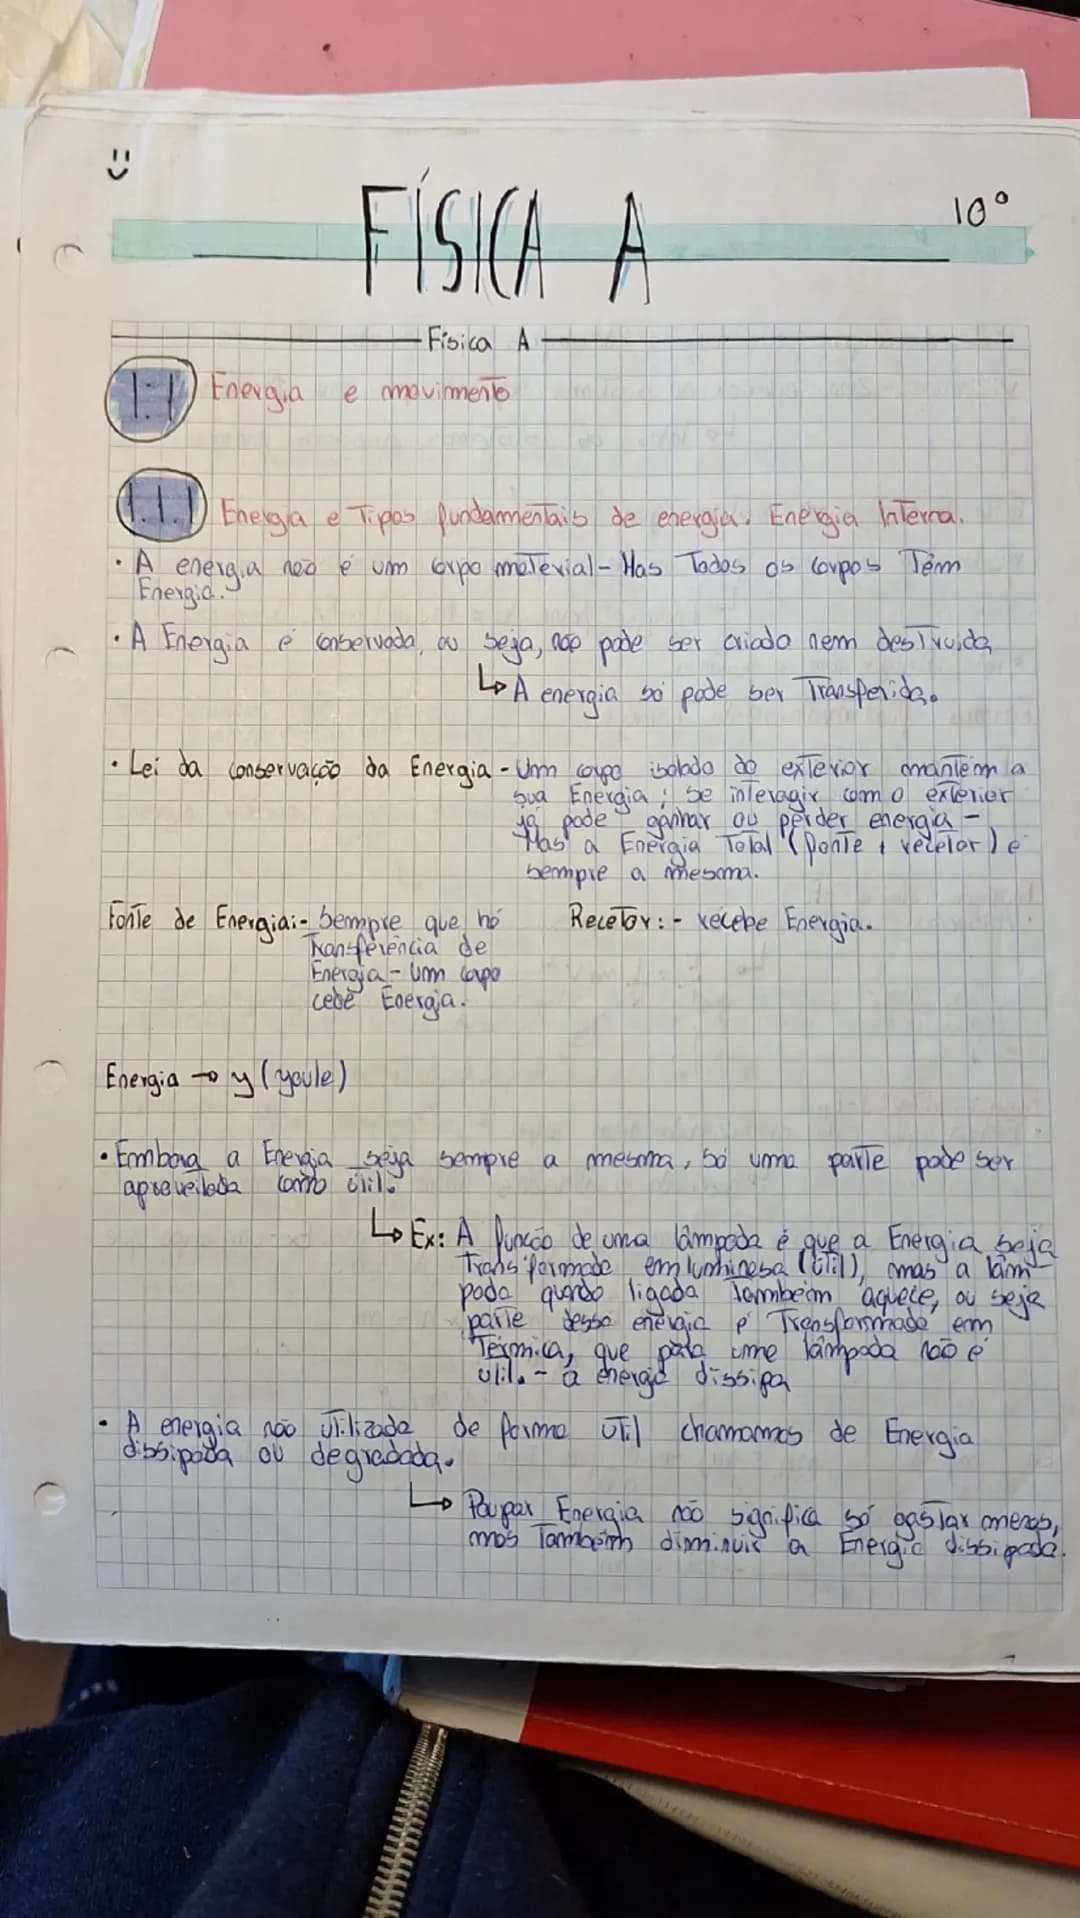 FÍSICA A
10º
Física A
1.1 Energia e movimento
1.1.1 Energia e Tipos fundamentais de energia. Energia Interna.
· A energia não é um corpo material - Mas Todos os corpos Têm
Energia.
· A Energia é conservada, ou seja, não pode ser criada nem destruida
↳ A energia só pode ser Transferida.
· Lei da conservação da Energia - Um corpo isolado do exterior mantêm a
sua Energia; se interagir com o exterior
já pode ganhar ou perder energia -
Mas a Energia Total (fonte + recetor) é
sempre a mesma.
Fonte de Energia:- Sempre que há
Transferência de
Energia - um corpo
cede Energia.
Recetor: - recebe Energia.
Energia → J (joule)
· Embora a Energia seja sempre a mesma, só uma parte pode ser
aproveitada como útil.
↳ Ex: A função de uma lâmpada é que a Energia seja
Transformada em luminosa (útil), mas a lâm-
pada quando ligada Também aquece, ou seja
parte dessa energia é Transformada em
Térmica, que para uma lâmpada não é
util. - a energia dissipa
· A energia não utilizada de forma útil chamamos de Energia
dissipada ou degradada.
↳ Poupar Energia não significa só gastar menos,
mas Também diminuir a Energia dissipada.